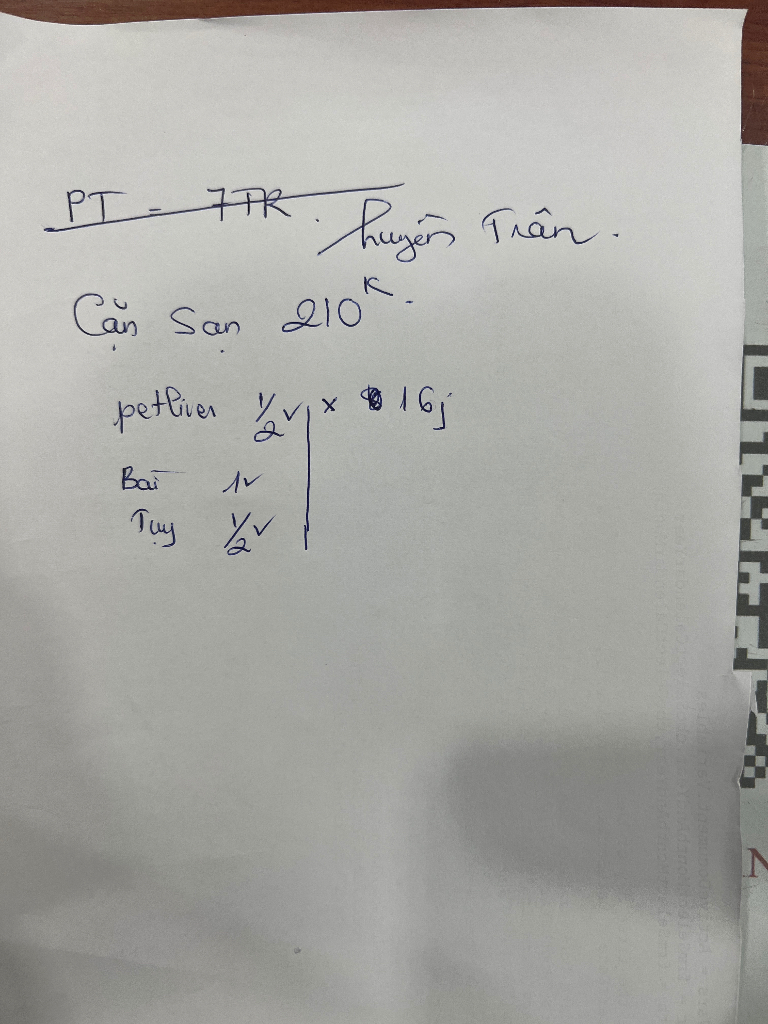 PT = 7TR.
huyền Trân.
Cặn Sạn 210K.
petliver 1/2v x 16j
Bài 1v
Tụy 1/2v
N